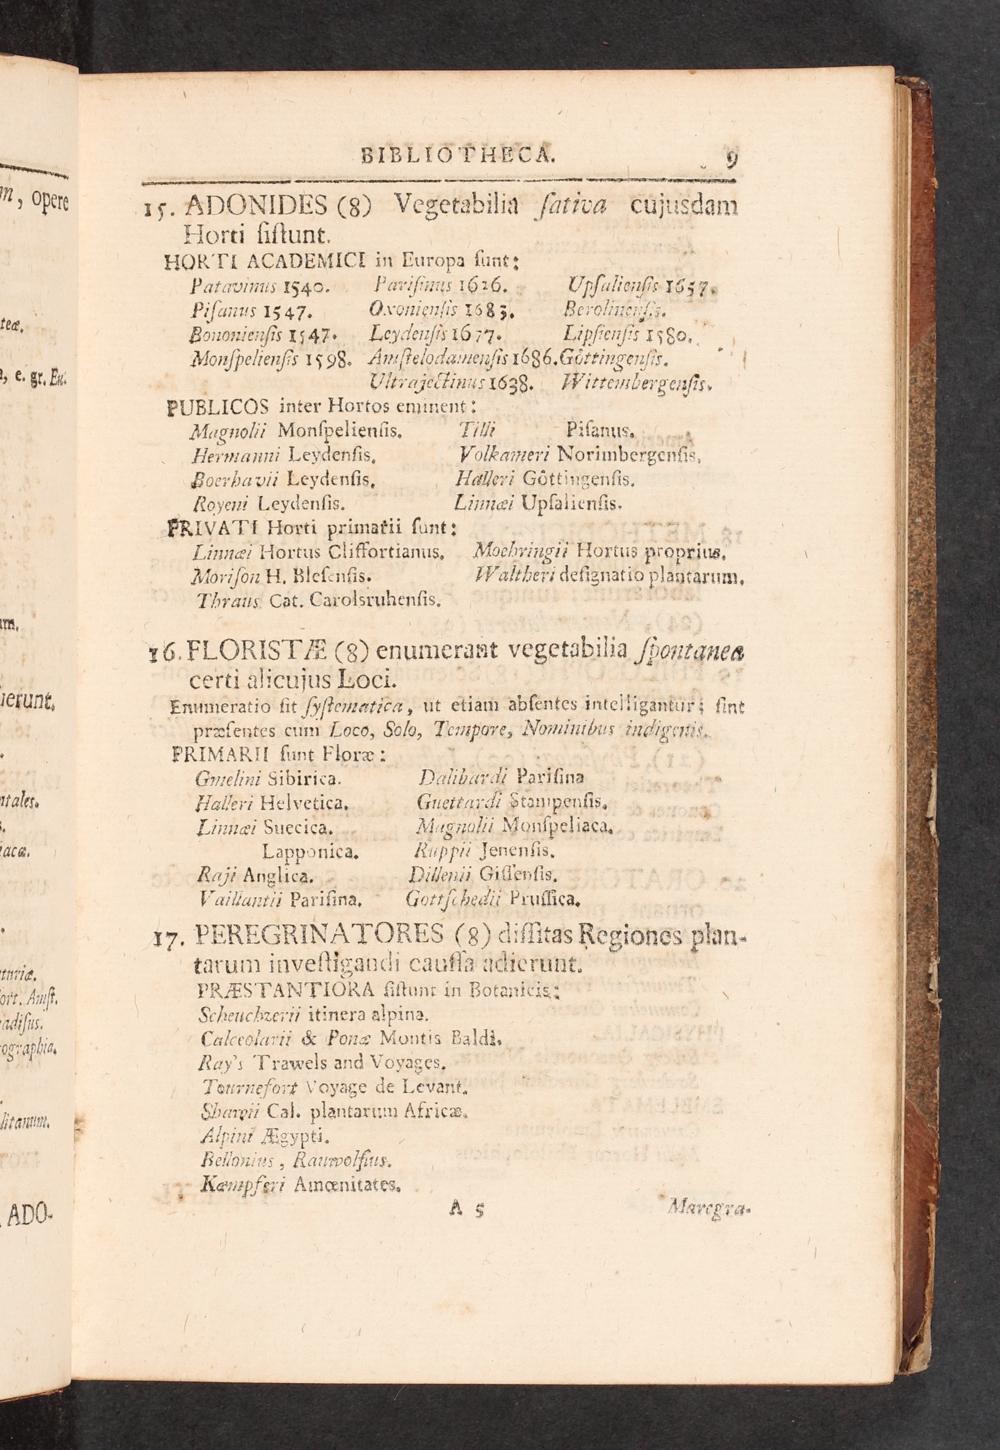 m, opere
teæ.
a, e. gr. Ex.
um.
ierunt.
ntales.
iacæ.
turiæ.
ort. Amst.
adisus.
ographia.
litanum.
ADO-
BIBLIOTHECA. 9
15. ADONIDES (8) Vegetabilia ſativa cujusdam
Horti ſiſtunt.
HORTI ACADEMICI in Europa ſunt:
Patavinus 1540. Pariſinus 1626. Upſalienſis 1657.
Piſanus 1547. Oxonienſis 1683. Berolinenſis.
Bononienſis 1547. Leydenſis 1677. Lipſienſis 1580.
Monſpelienſis 1598. Amſtelodamenſis 1686. Gôttingenſis.
Ultrajectinus 1638. Wittembergenſis.
PUBLICOS inter Hortos eminent:
Magnolii Monſpelienſis. Tilli Piſanus.
Hermanni Leydenſis. Volkameri Norimbergenſis.
Boerhavii Leydenſis. Halleri Gôttingenſis.
Royeni Leydenſis. Linnæi Upſalienſis.
PRIVATI Horti primarii ſunt:
Linnæi Hortus Cliffortianus. Moehringii Hortus proprius.
Moriſon H. Bleſenſis. Waltheri deſignatio plantarum.
Thraus Cat. Carolsruhenſis.
16. FLORISTÆ (8) enumerant vegetabilia ſpontanea
certi alicujus Loci.
Enumeratio ſit ſyſtematica, ut etiam abſentes intelligantur; ſint
præſentes cum Loco, Solo, Tempore, Nominibus indigenis.
PRIMARII ſunt Floræ:
Gmelini Sibirica. Dalibardi Pariſina
Halleri Helvetica. Guettardi Stampenſis.
Linnæi Suecica. Magnolii Monſpeliaca.
Lapponica. Ruppii Jenenſis.
Raji Anglica. Dillenii Giſſenſis.
Vaillantii Pariſina. Gottſchedii Pruſſica.
17. PEREGRINATORES (8) diſſitas Regiones plan-
tarum inveſtigandi cauſſa adierunt.
PRÆSTANTIORA ſiſtunt in Botanicis:
Scheuchzerii itinera alpina.
Calceolarii & Ponæ Montis Baldi.
Ray's Trawels and Voyages.
Tournefort Voyage de Levant.
Shawii Cal. plantarum Africæ.
Alpini Ægypti.
Bellonius, Rauwolfius.
Kæmpferi Amœnitates.
A 5 Marcgra-